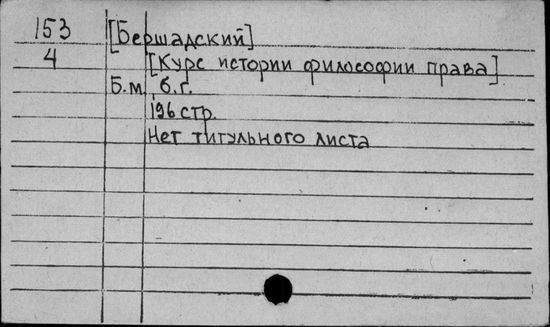 153 [Бершадский]
4 [Курс истории философии права]
Б.м., б.г.
196 стр.
Нет титульного листа